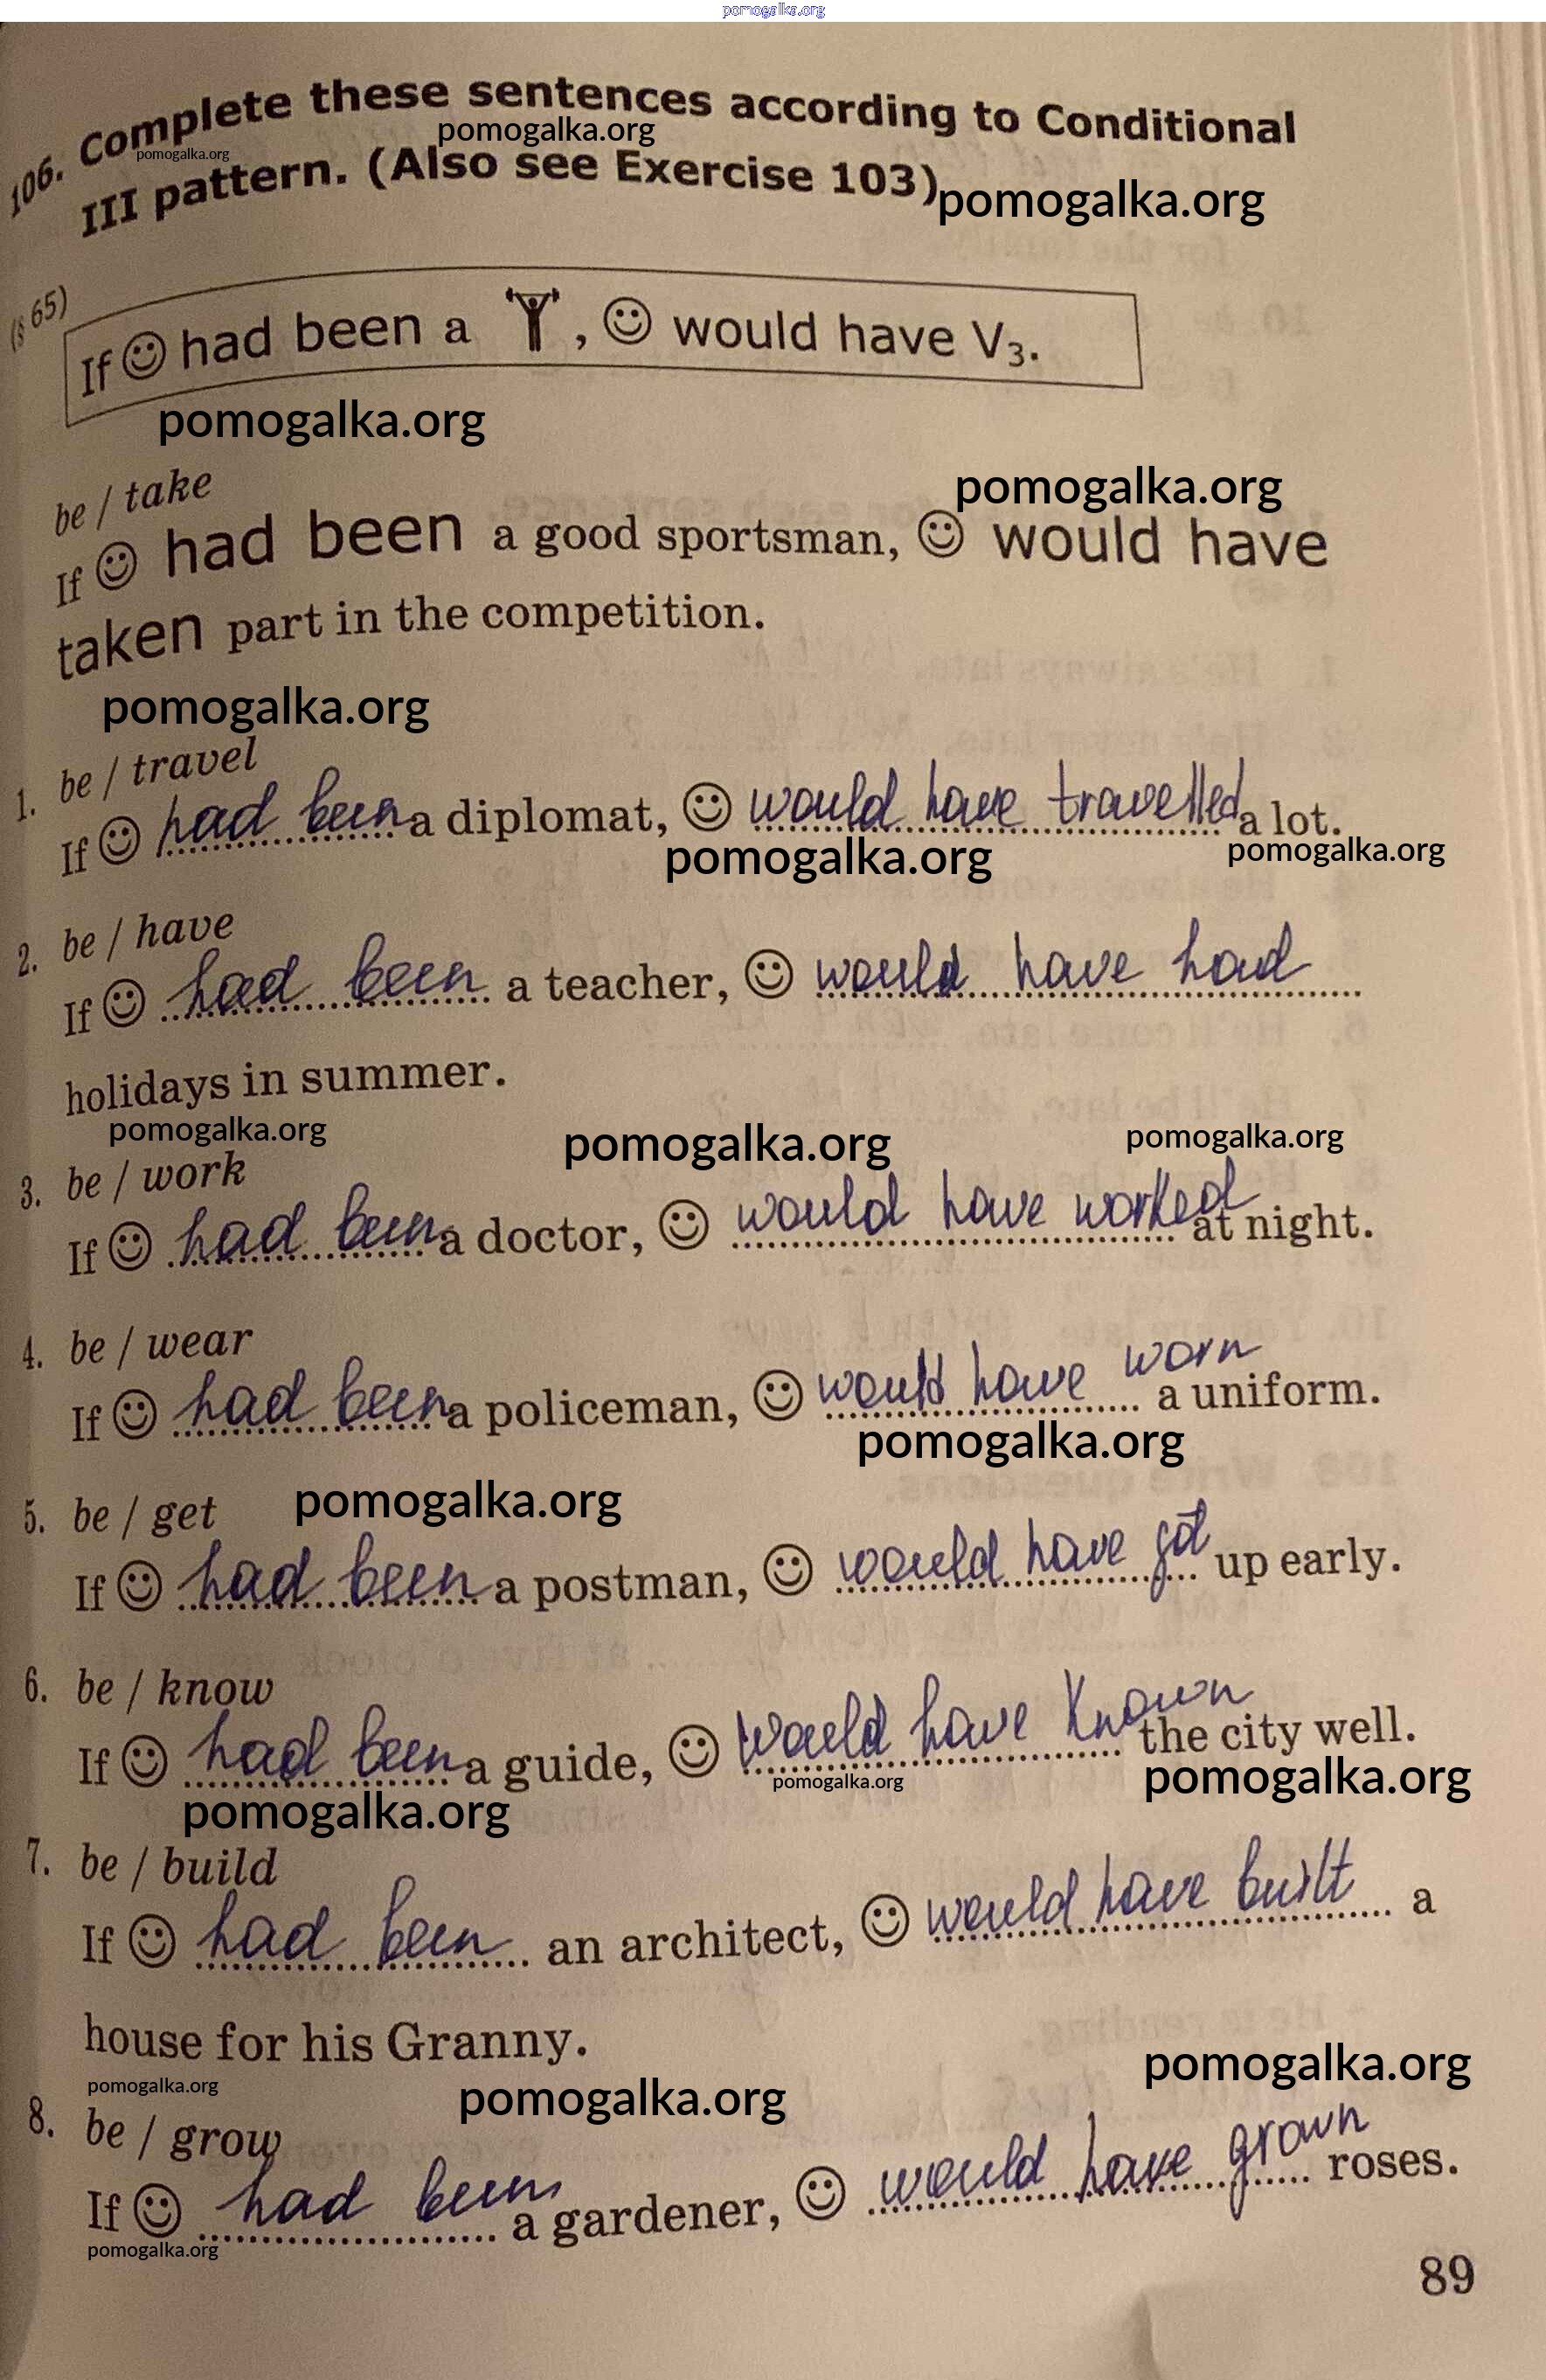 pomogalka.org
106. Complete these sentences according to Conditional
pomogalka.org
pomogalka.org
III pattern. (Also see Exercise 103)
pomogalka.org
(§ 65)
If ☺ had been a , ☺ would have V₃.
pomogalka.org
be / take
pomogalka.org
If ☺ had been a good sportsman, ☺ would have
taken part in the competition.
pomogalka.org
1. be / travel
If ☺ had been a diplomat, ☺ would have travelled a lot.
pomogalka.org
pomogalka.org
2. be / have
If ☺ had been a teacher, ☺ would have had
holidays in summer.
pomogalka.org
pomogalka.org
pomogalka.org
3. be / work
If ☺ had been a doctor, ☺ would have worked at night.
4. be / wear
If ☺ had been a policeman, ☺ would have worn a uniform.
pomogalka.org
5. be / get
pomogalka.org
If ☺ had been a postman, ☺ would have got up early.
6. be / know
If ☺ had been a guide, ☺ would have known the city well.
pomogalka.org
pomogalka.org
pomogalka.org
7. be / build
If ☺ had been an architect, ☺ would have built a
house for his Granny.
pomogalka.org
pomogalka.org
pomogalka.org
8. be / grow
If ☺ had been a gardener, ☺ would have grown roses.
pomogalka.org
89